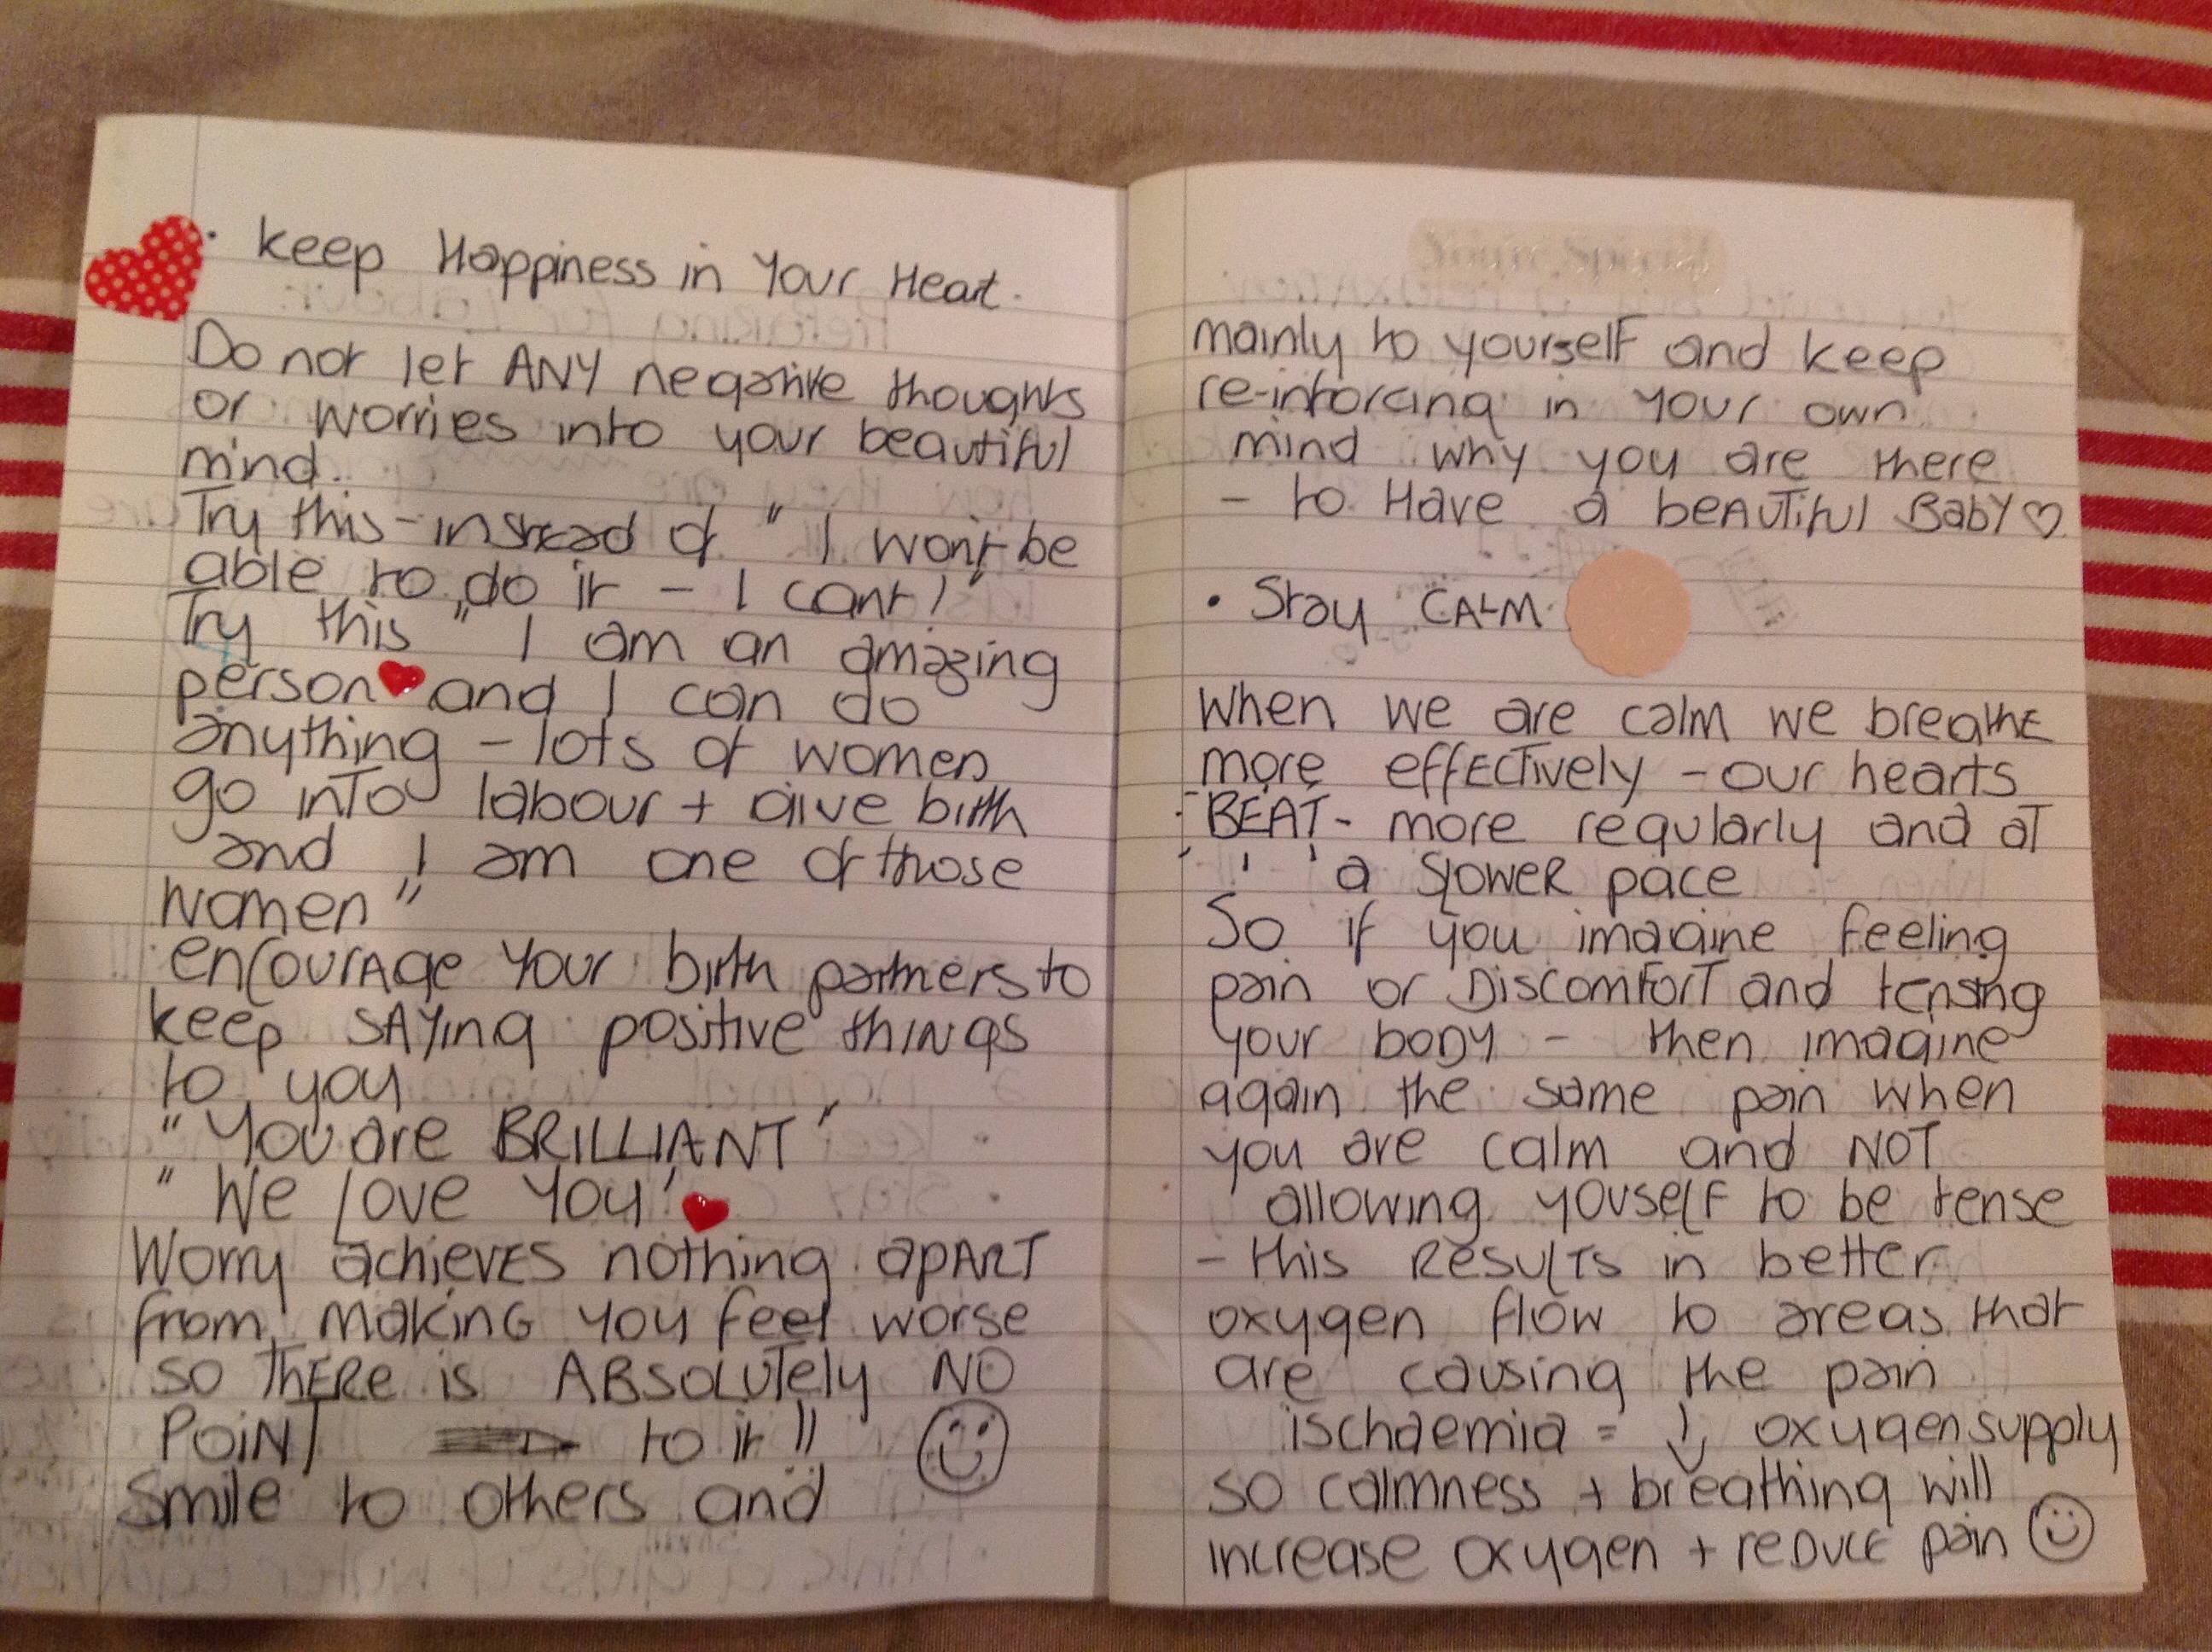 • keep Happiness in Your Heart.
Do not let ANY negative thoughts
or worries into your beautiful
mind.
Try this - instead of " I won't be
able to do it - I cant!"
Try this " I am an amazing
person and I can do
anything - lots of women
go into labour + give birth
and I am one of those
women"
encourage your birth partners to
keep saying positive things
to you
"You are BRILLIANT"
"We love You"
Worry achieves nothing apart
from making you feel worse
so there is ABSOLUTELY NO
POINT to it!!
Smile to others and
mainly to yourself and keep
re-inforcing in your own
mind why you are there
- to Have a beautiful Baby ♡
• Stay CALM
When we are calm we breathe
more effectively - our hearts
BEAT - more regularly and at
a slower pace
So if you imagine feeling
pain or Discomfort and tensing
your body - then imagine
again the same pain when
you are calm and NOT
allowing youself to be tense
- this Results in better
oxygen flow to areas that
are causing the pain
ischaemia = ↓ oxygen supply
so calmness + breathing will
increase oxygen + reduce pain